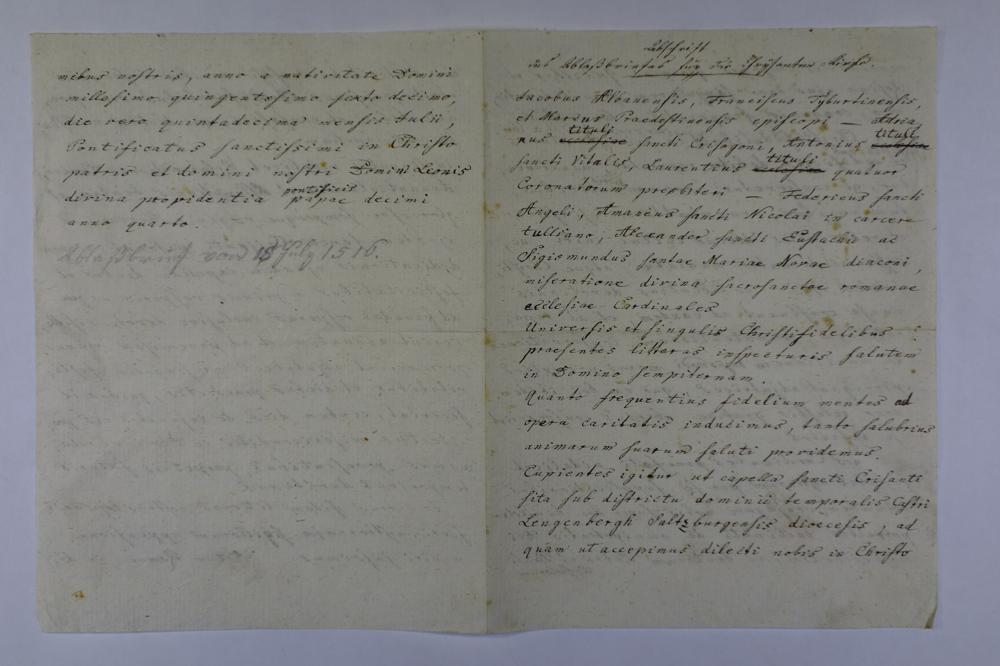 nibus nostris, anno a nativitate Domini
millesimo quingentesimo sexto decimo,
die vero quintadecima mensis Iulii,
Pontificatus sanctissimi in Christo
patris et domini nostri Domini Leonis
pontificis
divina propidentia papae decimi
anno quarto.
Ablaßbrief vom 15 July 1516.
Abschrift
des Ablaßbriefes für die Chrisanten Kirche.
Iacobus Albanensis, Franciscus Tyburtinensis,
et Marcus Praedestinensis episcopi — Adria
tituli titull
nus ecclesiae sancti Crisogoni, Antonius ecclesiae
tituli
sancti Vitalis, Laurentius ecclesiae quatuor
Coronatorum presbiteri — Federicus sancti
Angeli, Amaneus sancti Nicolai in carcere
tulliano, Alexander sancti Eustachii ac
Sigismundus santae Mariae Novae diaconi,
miseratione divina sacrosanctae romanae
ecclesiae Cardinales
Universis et singulis Christifidelibus
praesentes litteras inspecturis salutem
in Domino sempiternam.
Quanto frequentius fidelium mentes ad
opera caritatis inducimus, tanto salubrius
animarum suarum saluti providemus.
Cupientes igitur ut capella sancti Crisanti
sita sub districtu dominii temporalis Castri
Lengenbergh Saltzburgensis dioecesis, ad
quam ut accepimus dilecti nobis in Christo